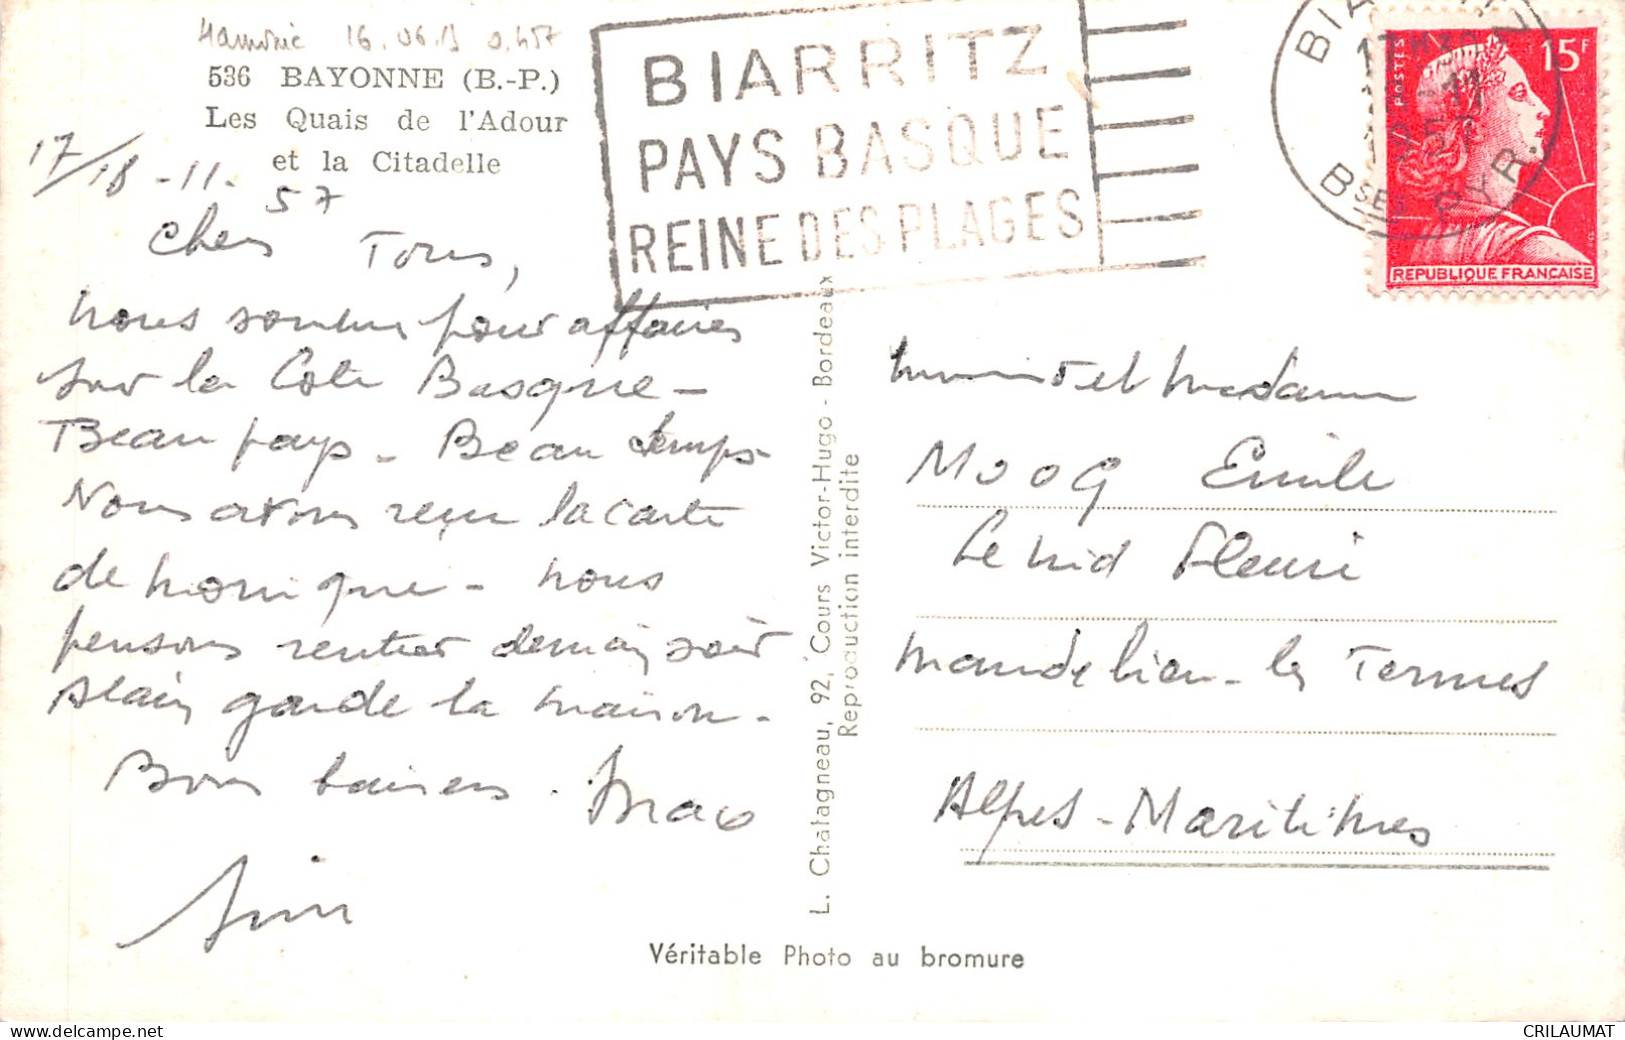 16.06.13
536 BAYONNE (B.-P.)
Les Quais de l'Adour
et la Citadelle
17/18-11-57
BIARRITZ
PAYS BASQUE
REINE DES PLAGES
BIARRITZ
17H30
-11
1957
BSES PYR.
POSTES
15F
REPUBLIQUE FRANÇAISE
Chers Tous,
Nous sommes pour affaires
sur la Côte Basque -
Beau pays - Beau temps -
Nous avons reçu la carte
de Monique - Nous
pensons rentrer demain soir
Alain garde la maison -
Bons baisers.
L. Chatagneau, 92, Cours Victor-Hugo - Bordeaux
Reproduction interdite
Monsieur et Madame
MOOG Emile
Le Nid Fleuri
Mandelieu-les Termes
Alpes-Maritimes
Véritable Photo au bromure
www.delcampe.net
CRILAUMAT